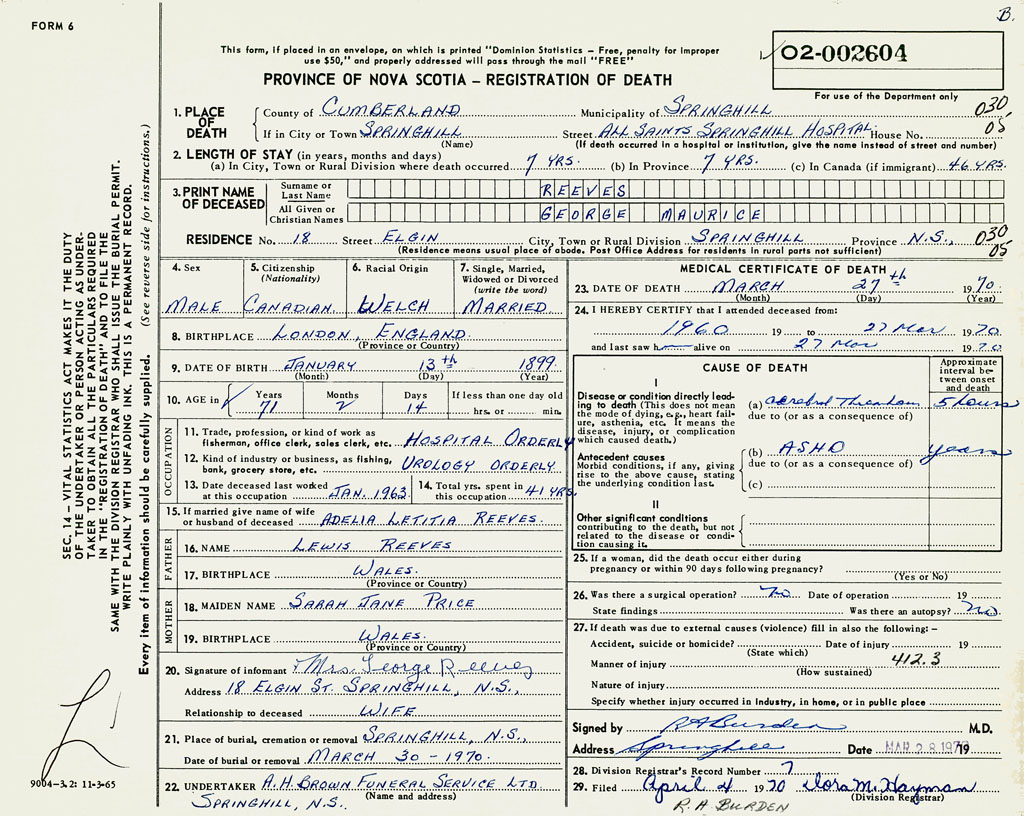 B.
FORM 6
This form, if placed in an envelope, on which is printed "Dominion Statistics — Free, penalty for improper
use $50," and properly addressed will pass through the mail "FREE"
02-002604
PROVINCE OF NOVA SCOTIA — REGISTRATION OF DEATH
For use of the Department only
1. PLACE OF DEATH
County of CUMBERLAND Municipality of SPRINGHILL 030
If in City or Town SPRINGHILL Street ALL SAINTS SPRINGHILL HOSPITAL House No. 05
(Name) (If death occurred in a hospital or institution, give the name instead of street and number)
2. LENGTH OF STAY (in years, months and days)
(a) In City, Town or Rural Division where death occurred 7 YRS. (b) In Province 7 YRS. (c) In Canada (if immigrant) 46 YRS.
3. PRINT NAME OF DECEASED
Surname or Last Name REEVES
All Given or Christian Names GEORGE MAURICE
RESIDENCE No. 18 Street ELGIN City, Town or Rural Division SPRINGHILL Province N.S., 030 05
(Residence means usual place of abode. Post Office Address for residents in rural parts not sufficient)
4. Sex 5. Citizenship (Nationality) 6. Racial Origin 7. Single, Married, Widowed or Divorced (write the word)
MALE CANADIAN WELCH MARRIED
8. BIRTHPLACE LONDON, ENGLAND
(Province or Country)
9. DATE OF BIRTH JANUARY 13th 1899
(Month) (Day) (Year)
10. AGE in Years Months Days If less than one day old
71 2 14 hrs. or min.
OCCUPATION
11. Trade, profession, or kind of work as
fisherman, office clerk, sales clerk, etc. HOSPITAL ORDERLY
12. Kind of industry or business, as fishing,
bank, grocery store, etc. UROLOGY ORDERLY
13. Date deceased last worked at this occupation JAN. 1963 14. Total yrs. spent in this occupation 41 YRS
15. If married give name of wife
or husband of deceased ADELIA LETITIA REEVES.
FATHER
16. NAME LEWIS REEVES
17. BIRTHPLACE WALES.
(Province or Country)
MOTHER
18. MAIDEN NAME SARAH JANE PRICE
19. BIRTHPLACE WALES.
(Province or Country)
20. Signature of informant Mrs. George Reeves
Address 18 ELGIN ST. SPRINGHILL, N.S.,
Relationship to deceased WIFE
21. Place of burial, cremation or removal SPRINGHILL, N.S.,
Date of burial or removal MARCH 30-1970.
22. UNDERTAKER A.H. BROWN FUNERAL SERVICE LTD
(Name and address)
SPRINGHILL, N.S.,
MEDICAL CERTIFICATE OF DEATH
23. DATE OF DEATH MARCH 27th 1970
(Month) (Day) (Year)
24. I HEREBY CERTIFY that I attended deceased from:
1960 19 to 27 Mar 1970
and last saw h alive on 27 Mar 1970
CAUSE OF DEATH
Approximate interval between onset and death
I
Disease or condition directly leading
to death (This does not mean
the mode of dying, e.g., heart failure,
asthenia, etc. It means the
disease, injury, or complication
which caused death.)
(a) cerebral 5 hours
due to (or as a consequence of)
Antecedent causes
Morbid conditions, if any, giving
rise to the above cause, stating
the underlying condition last.
(b) ASHD years
due to (or as a consequence of)
(c)
II
Other significant conditions
contributing to the death, but not
related to the disease or condition
causing it.
25. If a woman, did the death occur either during
pregnancy or within 90 days following pregnancy?
(Yes or No)
26. Was there a surgical operation? no Date of operation 19
State findings Was there an autopsy? no
27. If death was due to external causes (violence) fill in also the following: —
Accident, suicide or homicide? Date of injury 19
(State which) 412.3
Manner of injury
(How sustained)
Nature of injury
Specify whether injury occurred in industry, in home, or in public place
Signed by RA Burden M.D.
Address Springhill Date MAR 28 1970 19
28. Division Registrar's Record Number 7
29. Filed April 4 1970 Dora M. Hayman
(Division Registrar)
R. A BURDEN
SEC. 14 — VITAL STATISTICS ACT MAKES IT THE DUTY
OF THE UNDERTAKER OR PERSON ACTING AS UNDER-
TAKER TO OBTAIN ALL THE PARTICULARS REQUIRED
IN THE "REGISTRATION OF DEATH" AND TO FILE THE
SAME WITH THE DIVISION REGISTRAR WHO SHALL ISSUE THE BURIAL PERMIT.
WRITE PLAINLY WITH UNFADING INK. THIS IS A PERMANENT RECORD.
Every item of information should be carefully supplied. (See reverse side for instructions.)
9004-3.2: 11-3-65